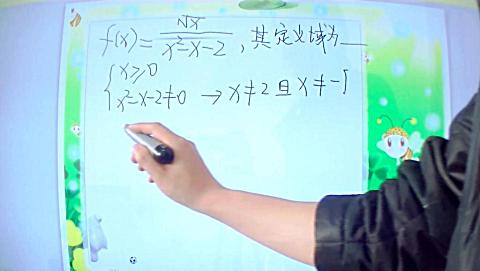 f(x) = √x / x²-x-2 , 其定义域为___
{ x ≥ 0
x²-x-2≠0 → x≠2 且 x≠-1